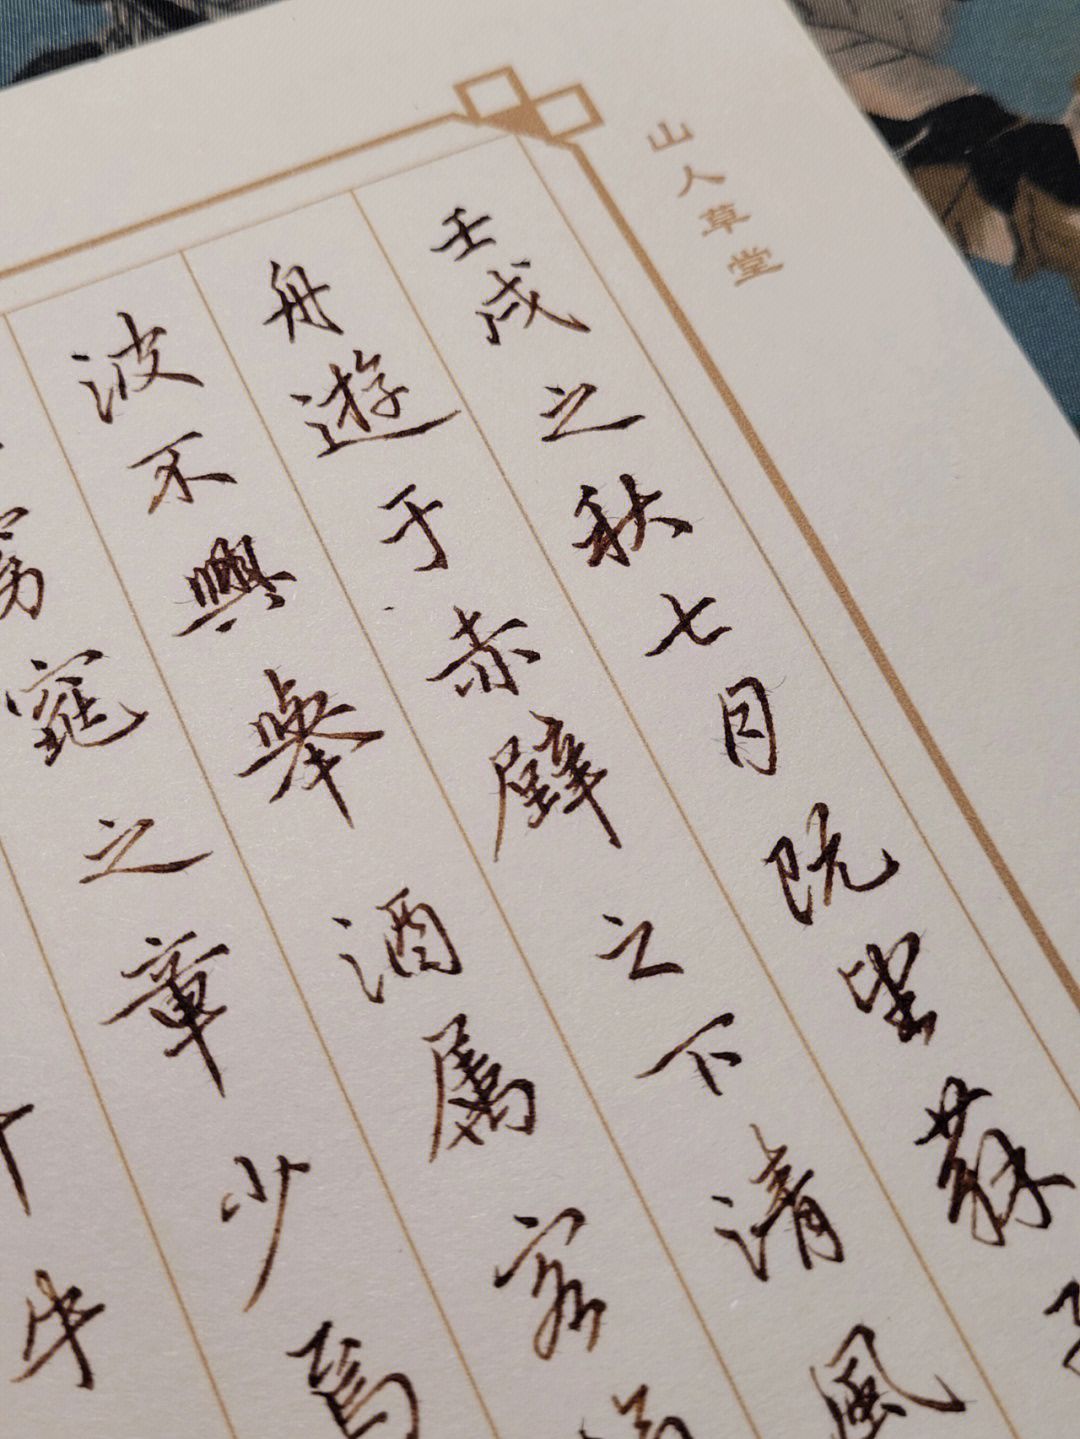 山人草堂
壬戌之秋七月既望蘇
舟遊于赤壁之下清風
波不興舉酒屬客
窈窕之章少焉
牛